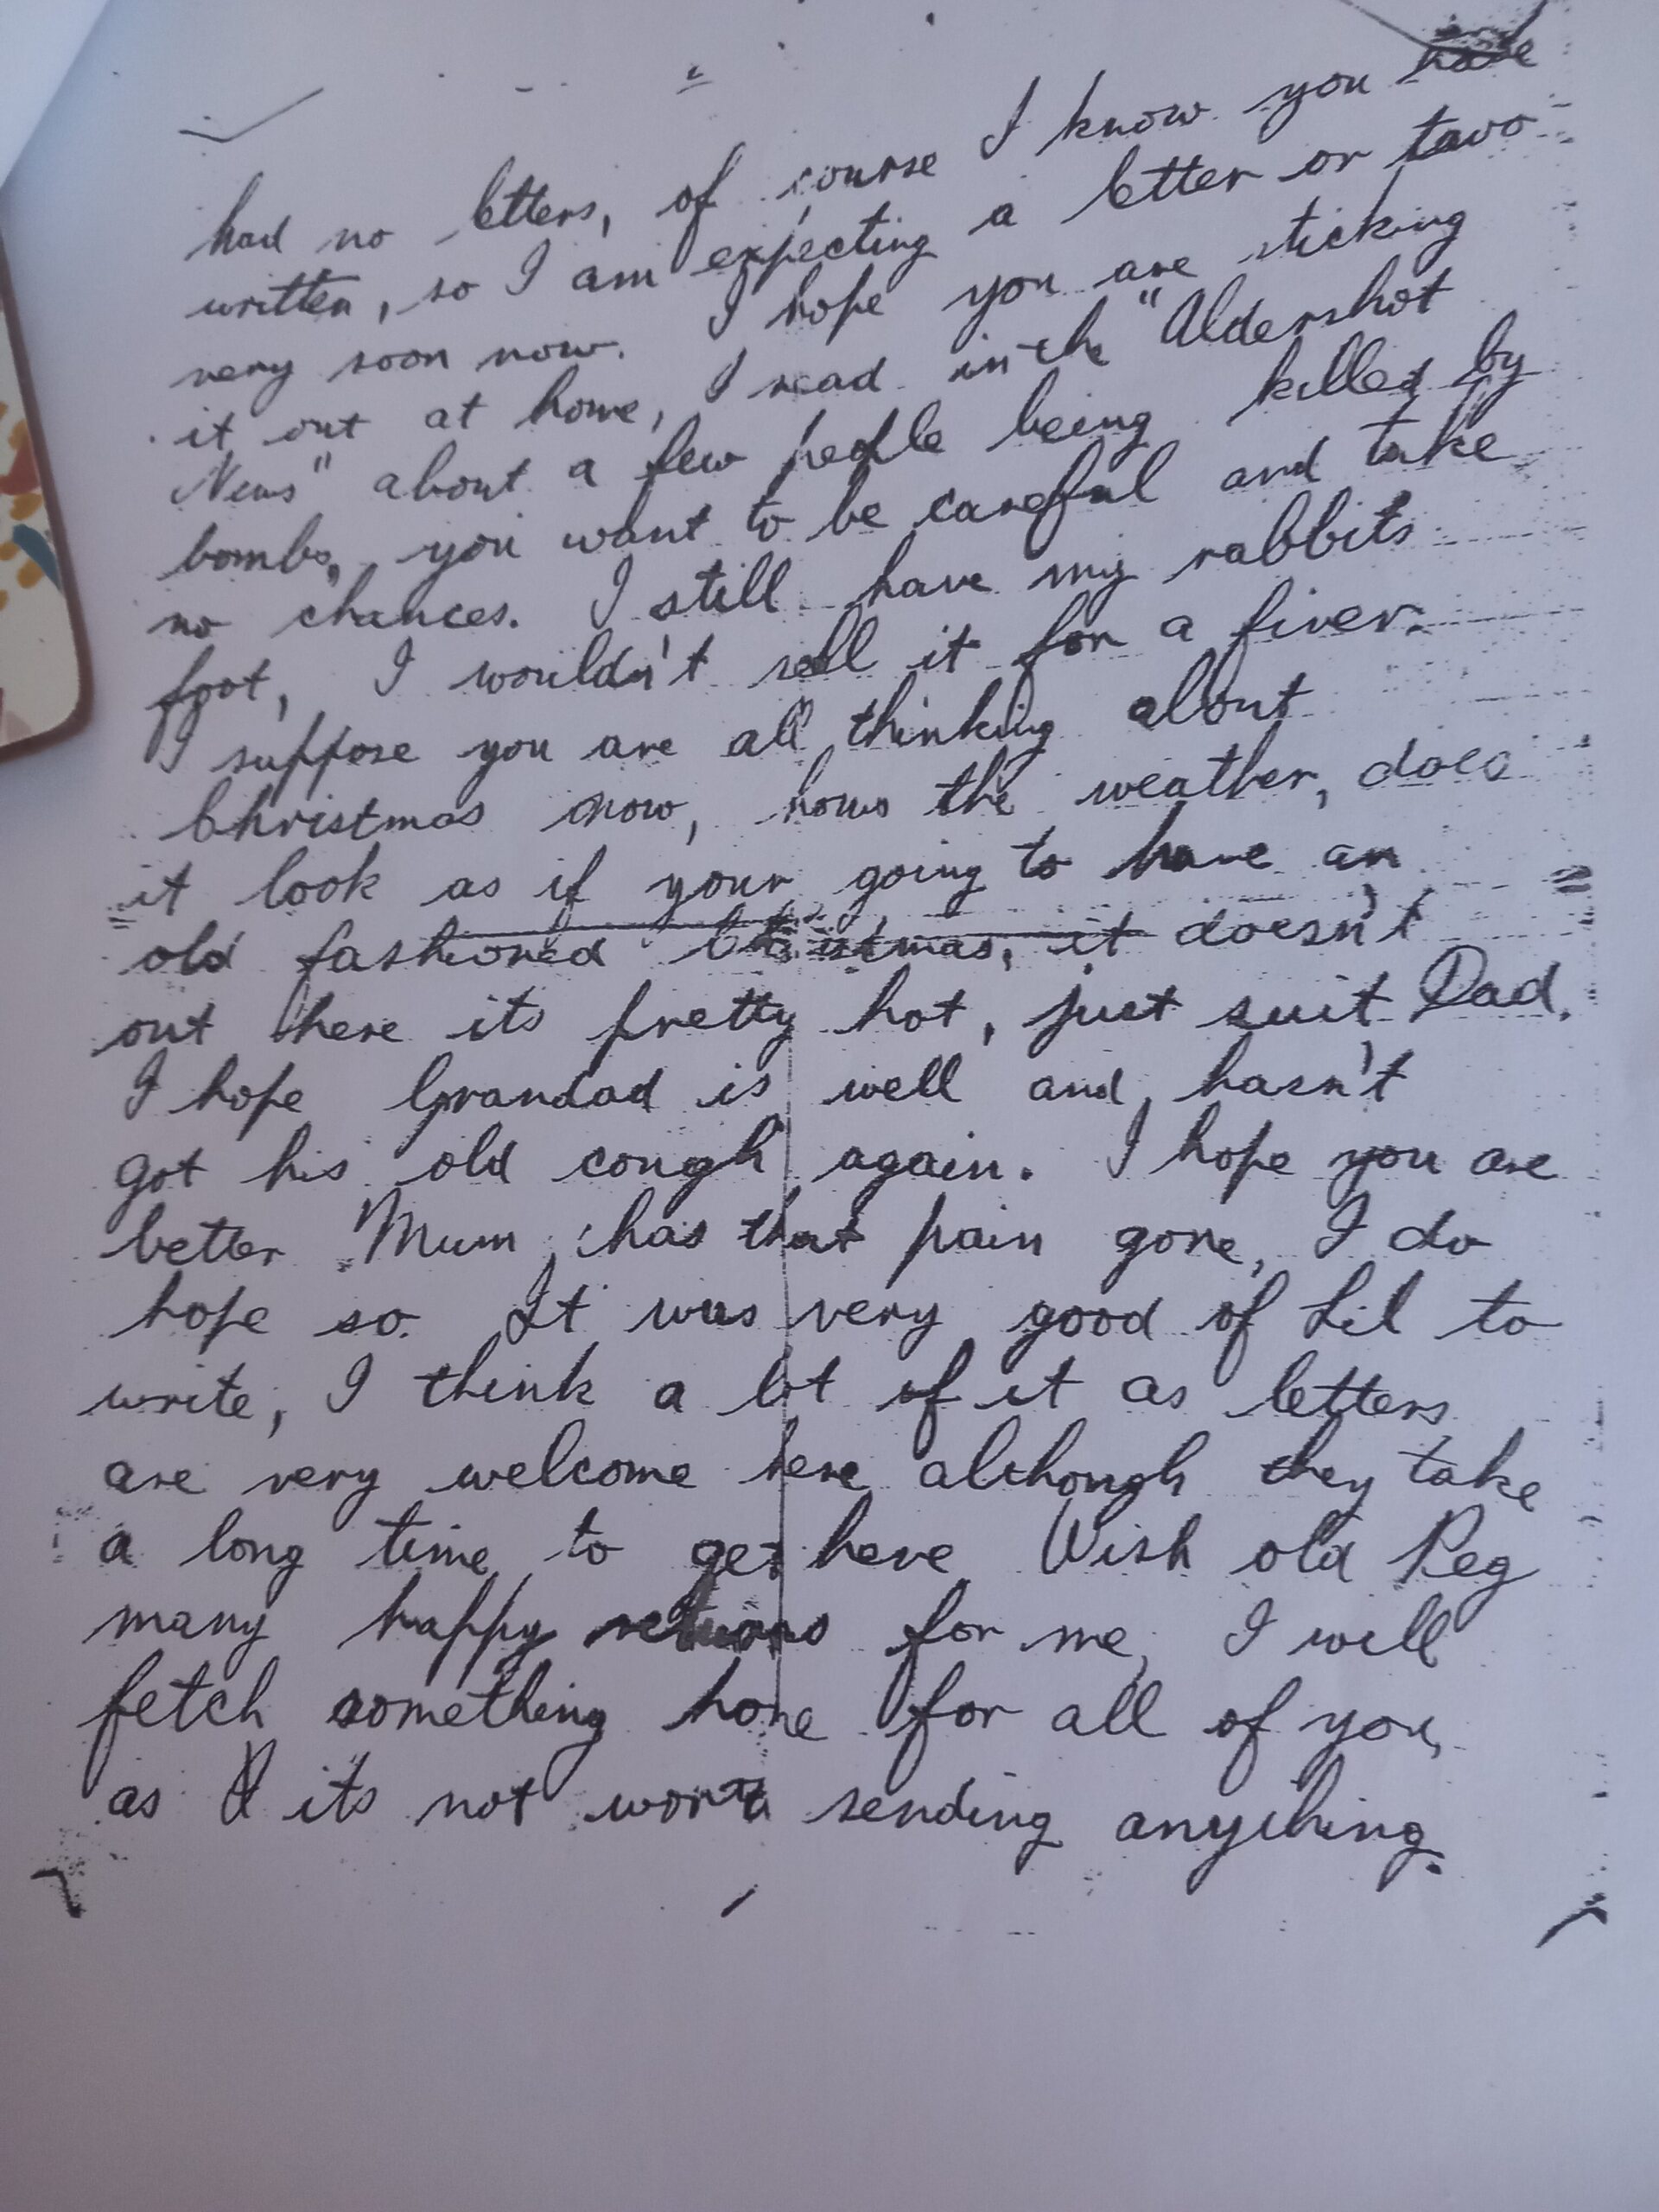 had no letters, of course I know you have
written, so I am expecting a letter or two
very soon now. I hope you are sticking
it out at home, I read in the "Aldershot
News" about a few people being killed by
bombs, you want to be careful and take
no chances. I still have my rabbits
foot, I wouldn't sell it for a fiver.
I suppose you are all thinking about
Christmas now, hows the weather, does
it look as if your going to have an
old fashioned Christmas, it doesn't
out here its pretty hot, just suit Dad.
I hope Grandad is well and hasn't
got his old cough again. I hope you are
better Mum, has that pain gone, I do
hope so. It was very good of Lil to
write, I think a lot of it as letters
are very welcome here although they take
a long time to get here Wish old Peg
many happy returns for me, I will
fetch something home for all of you,
as I its not worth sending anything.